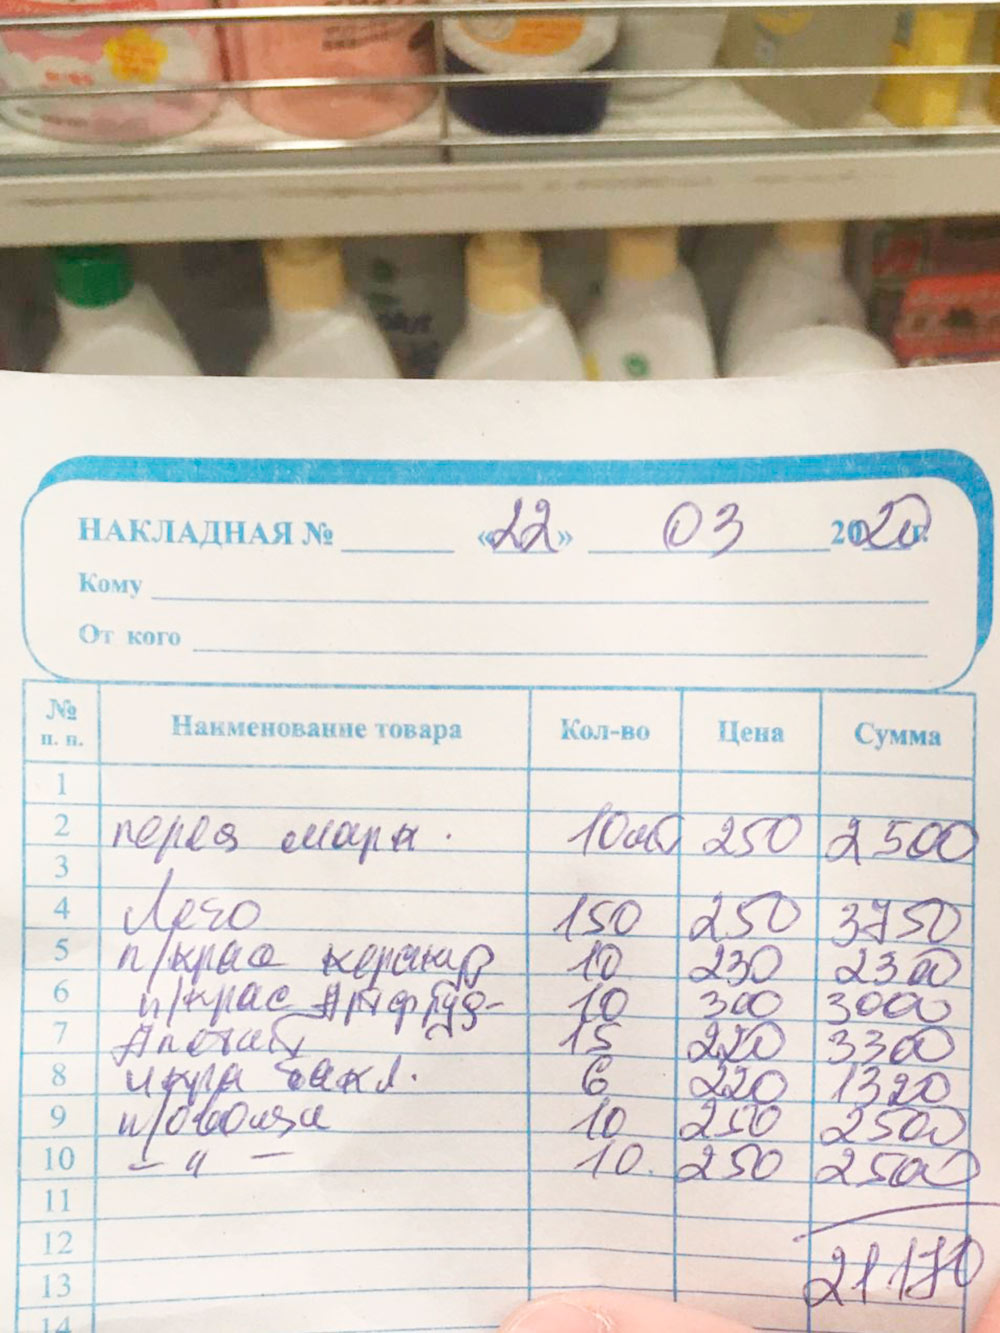 НАКЛАДНАЯ № «22» 03 2020 г.
Кому
От кого
№ п. п. Наименование товара Кол-во Цена Сумма
1
2 перец мари. 10шт 250 2500
3
4 Лечо 150 250 3750
5 п/крас 10 230 2300
6 п/крас 10 300 3000
7 15 220 3300
8 икра бакл. 6 220 1320
9 п/овощи 10 250 2500
10 – " – 10. 250 2500
11
12
13 21170
14